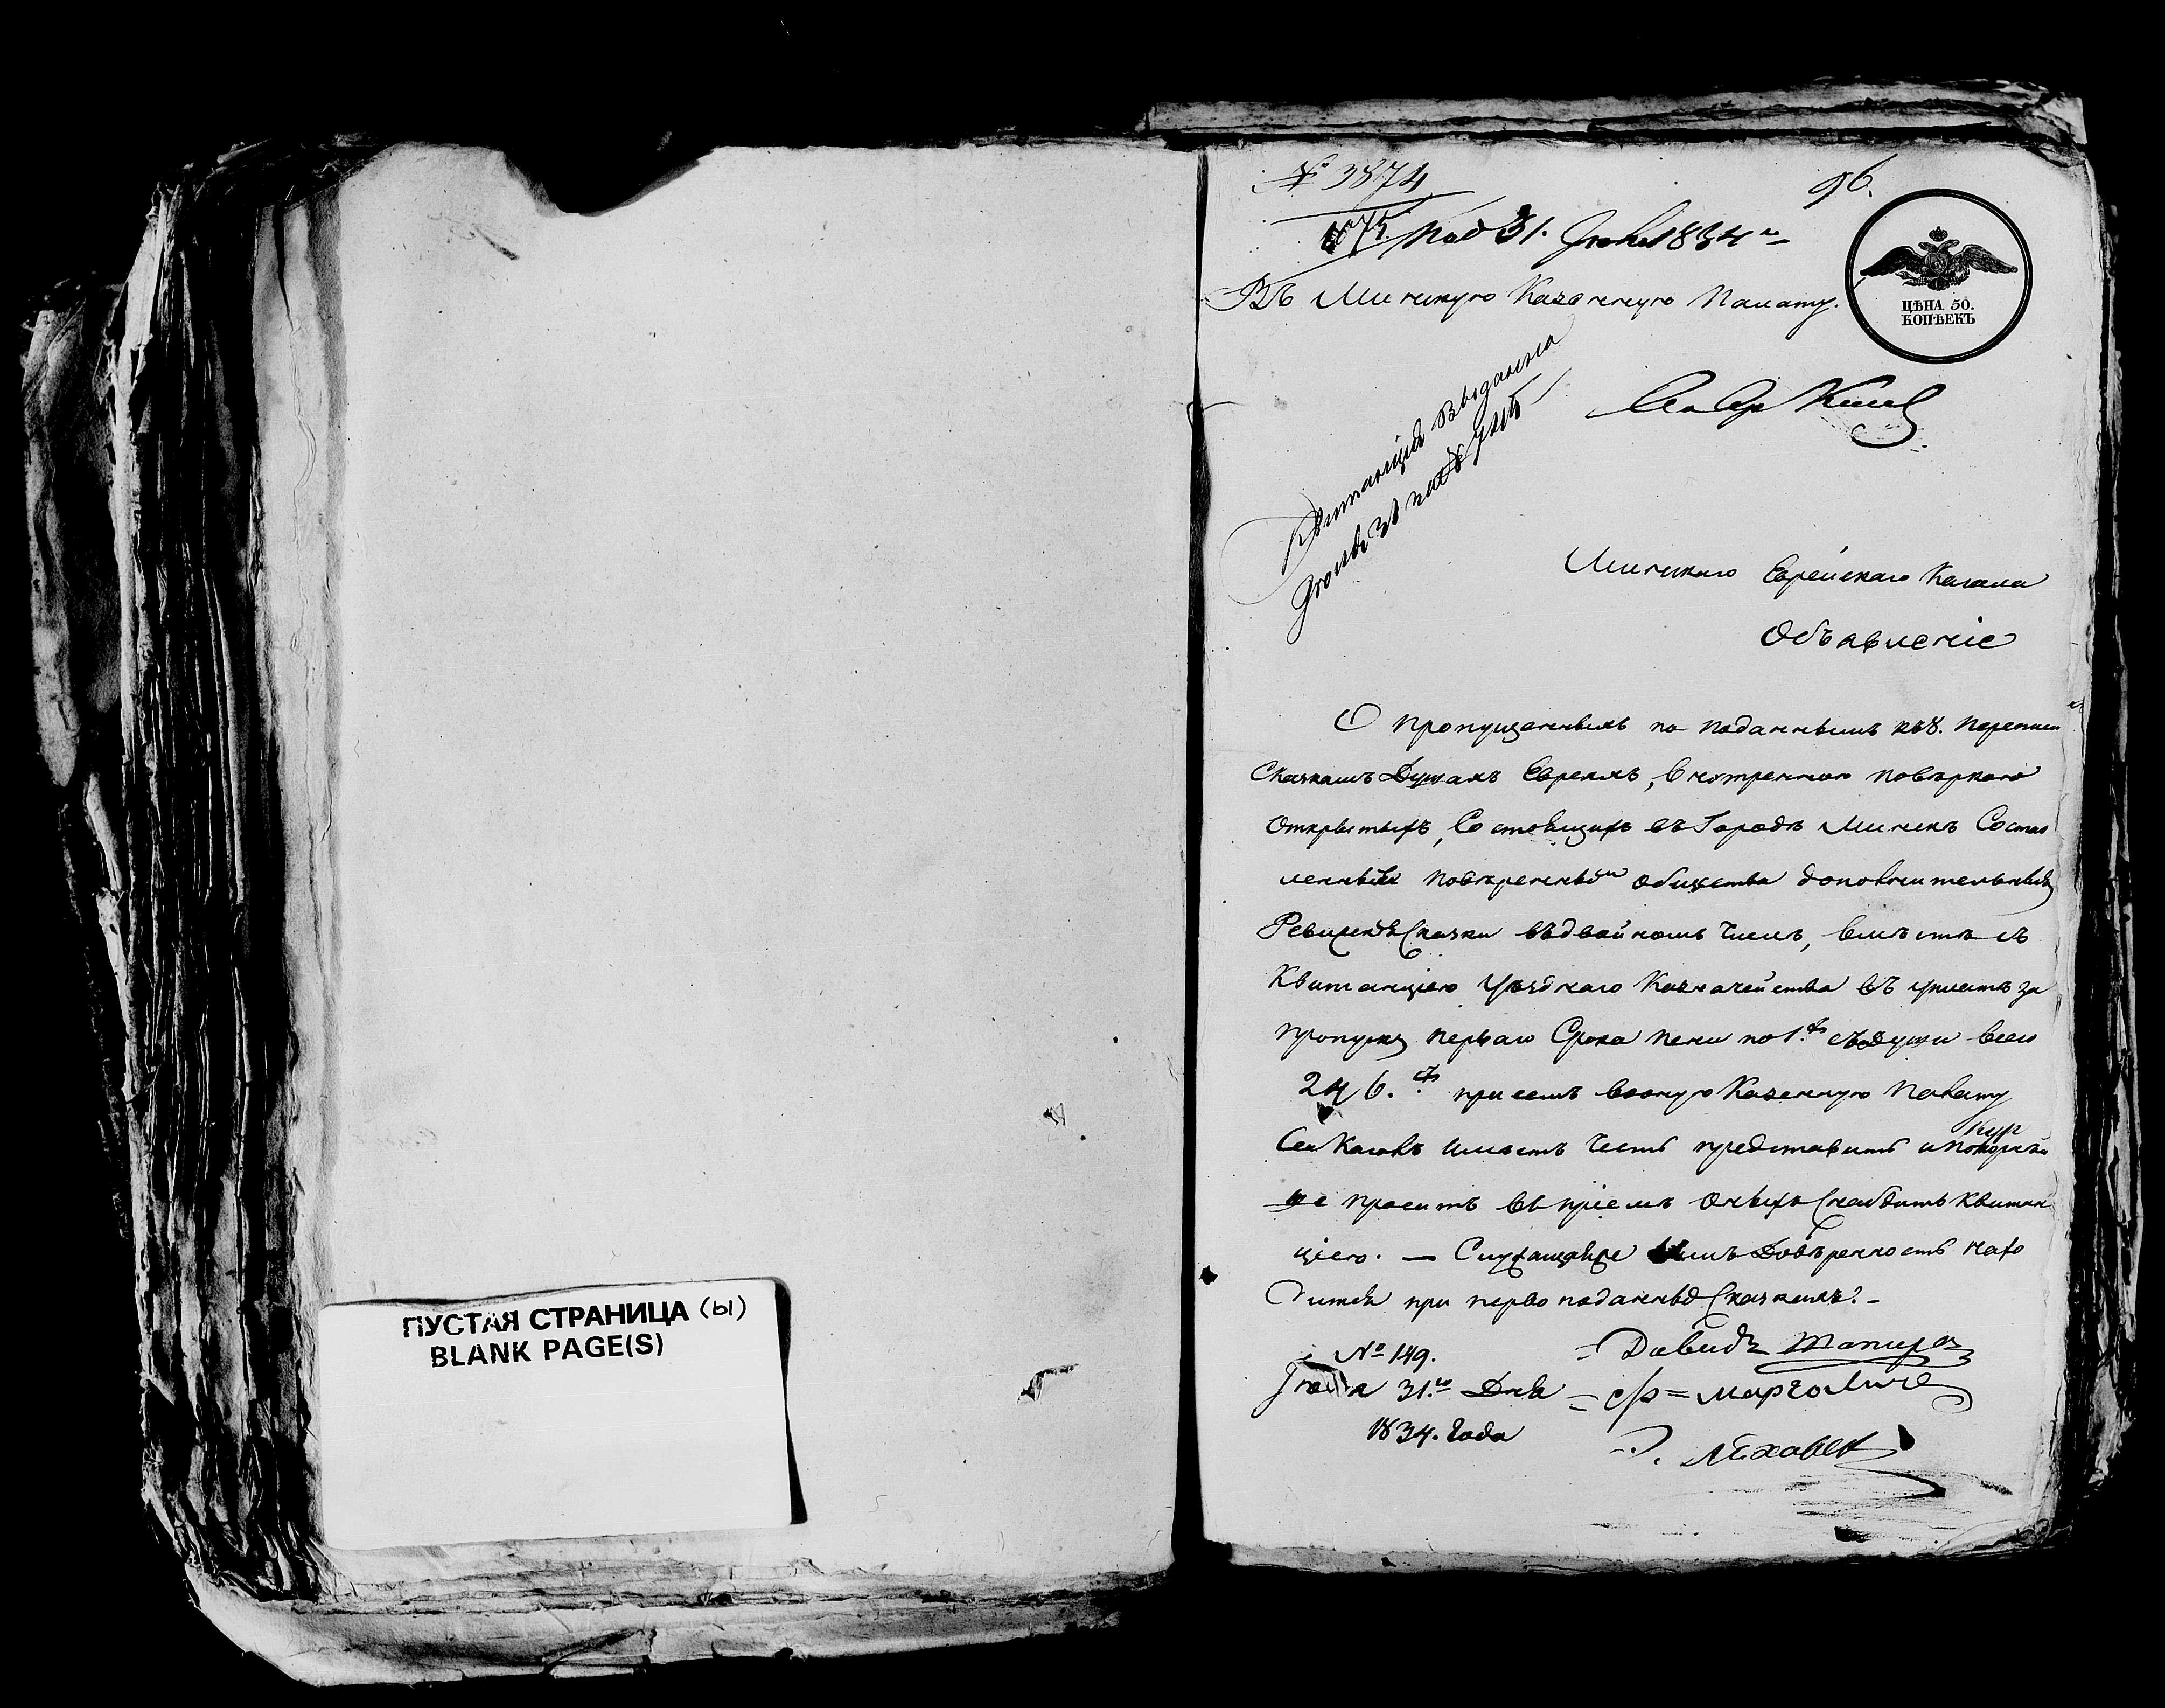 ПУСТАЯ СТРАНИЦА (ы)
BLANK PAGE(S)
№ 3874
96.
Под 31. Июля 1834 г
Въ Минскую Казенную Палату.
ЦѢНА 50.
КОПѢЕКЪ
Квитанция выдана
Июля 31
Минскаго Еврейскаго Кагала
Объявленіе
О пропущенныхъ по поданнымъ къ 8. переписи
Сказкамъ Душахъ Евреяхъ, внутреннею повѣркою
Открытыхъ, Состоящихъ въ Городѣ Минскѣ Состав
ленныя повѣреннымъ общества дополнительныя
Ревизскія Сказки въ двойномъ Числѣ, вмѣстѣ съ
Квитанціею Уѣзднаго Казначейства въ уплатѣ за
пропускъ перваго Срока пени по 1. съ души всего
246. при семъ въ оную Казенную Палату
Сей Кагалъ имѣетъ Честь представить и покорнѣй
ше проситъ въ пріемѣ Оныхъ Снабдить Квитан
ціею. — Служащая имъ Довѣренность нахо
дится при перво поданныхъ Сказкахъ. -
№ 149.
Июля 31.го Дня
1834. Года
Давидъ Шапиро